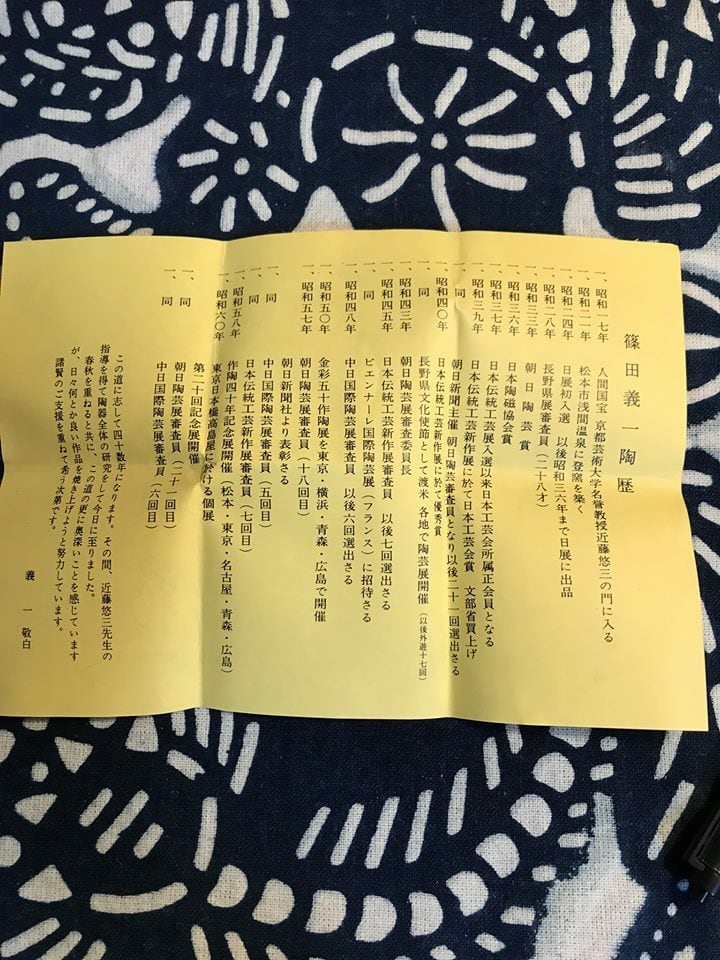 篠田義一陶歴
一、昭和一七年 人間国宝 京都芸術大学名誉教授近藤悠三の門に入る
一、昭和二一年 松本市浅間温泉に登窯を築く
一、昭和二四年 日展初入選 以後昭和三六年まで日展に出品
一、昭和二八年 長野県展審査員(二十八才)
一、昭和三三年 朝日陶芸賞
一、昭和三六年 日本陶磁協会賞
一、昭和三七年 日本伝統工芸展入選以来日本工芸会所属正会員となる
一、昭和三九年 日本伝統工芸新作展に於て日本工芸会賞 文部省買上げ
一、同 朝日新聞主催 朝日陶芸審査員となり以後二十一回選出さる
一、昭和四〇年 日本伝統工芸新作展に於て優秀賞
一、同 長野県文化使節として渡米 各地で陶芸展開催(以後外遊十七回)
一、昭和四三年 朝日陶芸展審査委員長
一、昭和四五年 日本伝統工芸新作展審査員 以後七回選出さる
一、同 ビェンナーレ国際陶芸展(フランス)に招待さる
一、昭和四八年 中日国際陶芸展審査員 以後六回選出さる
一、昭和五〇年 金彩五十作陶展を東京・横浜・青森・広島で開催
一、昭和五七年 朝日陶芸展審査員(十八回目)
朝日新聞社より表彰さる
一、同 中日国際陶芸展審査員(五回目)
一、同 日本伝統工芸新作展審査員(七回目)
一、昭和五八年 作陶四十年記念展開催(松本・東京・名古屋・青森・広島)
一、昭和六〇年 東京日本橋高島屋に於ける個展
第二十回記念展開催
一、同 朝日陶芸展審査員(二十一回目)
一、同 中日国際陶芸展審査員(六回目)
この道に志して四十数年になります。その間、近藤悠三先生の
指導を得て陶器全体の研究をして今日に至りました。
春秋を重ねると共に、この道の更に奥深いことを感じています
が、日々何とか良い作品を焼き上げようと努力しています。
諸賢のご支援を重ねて希う次第です。
義一 敬白